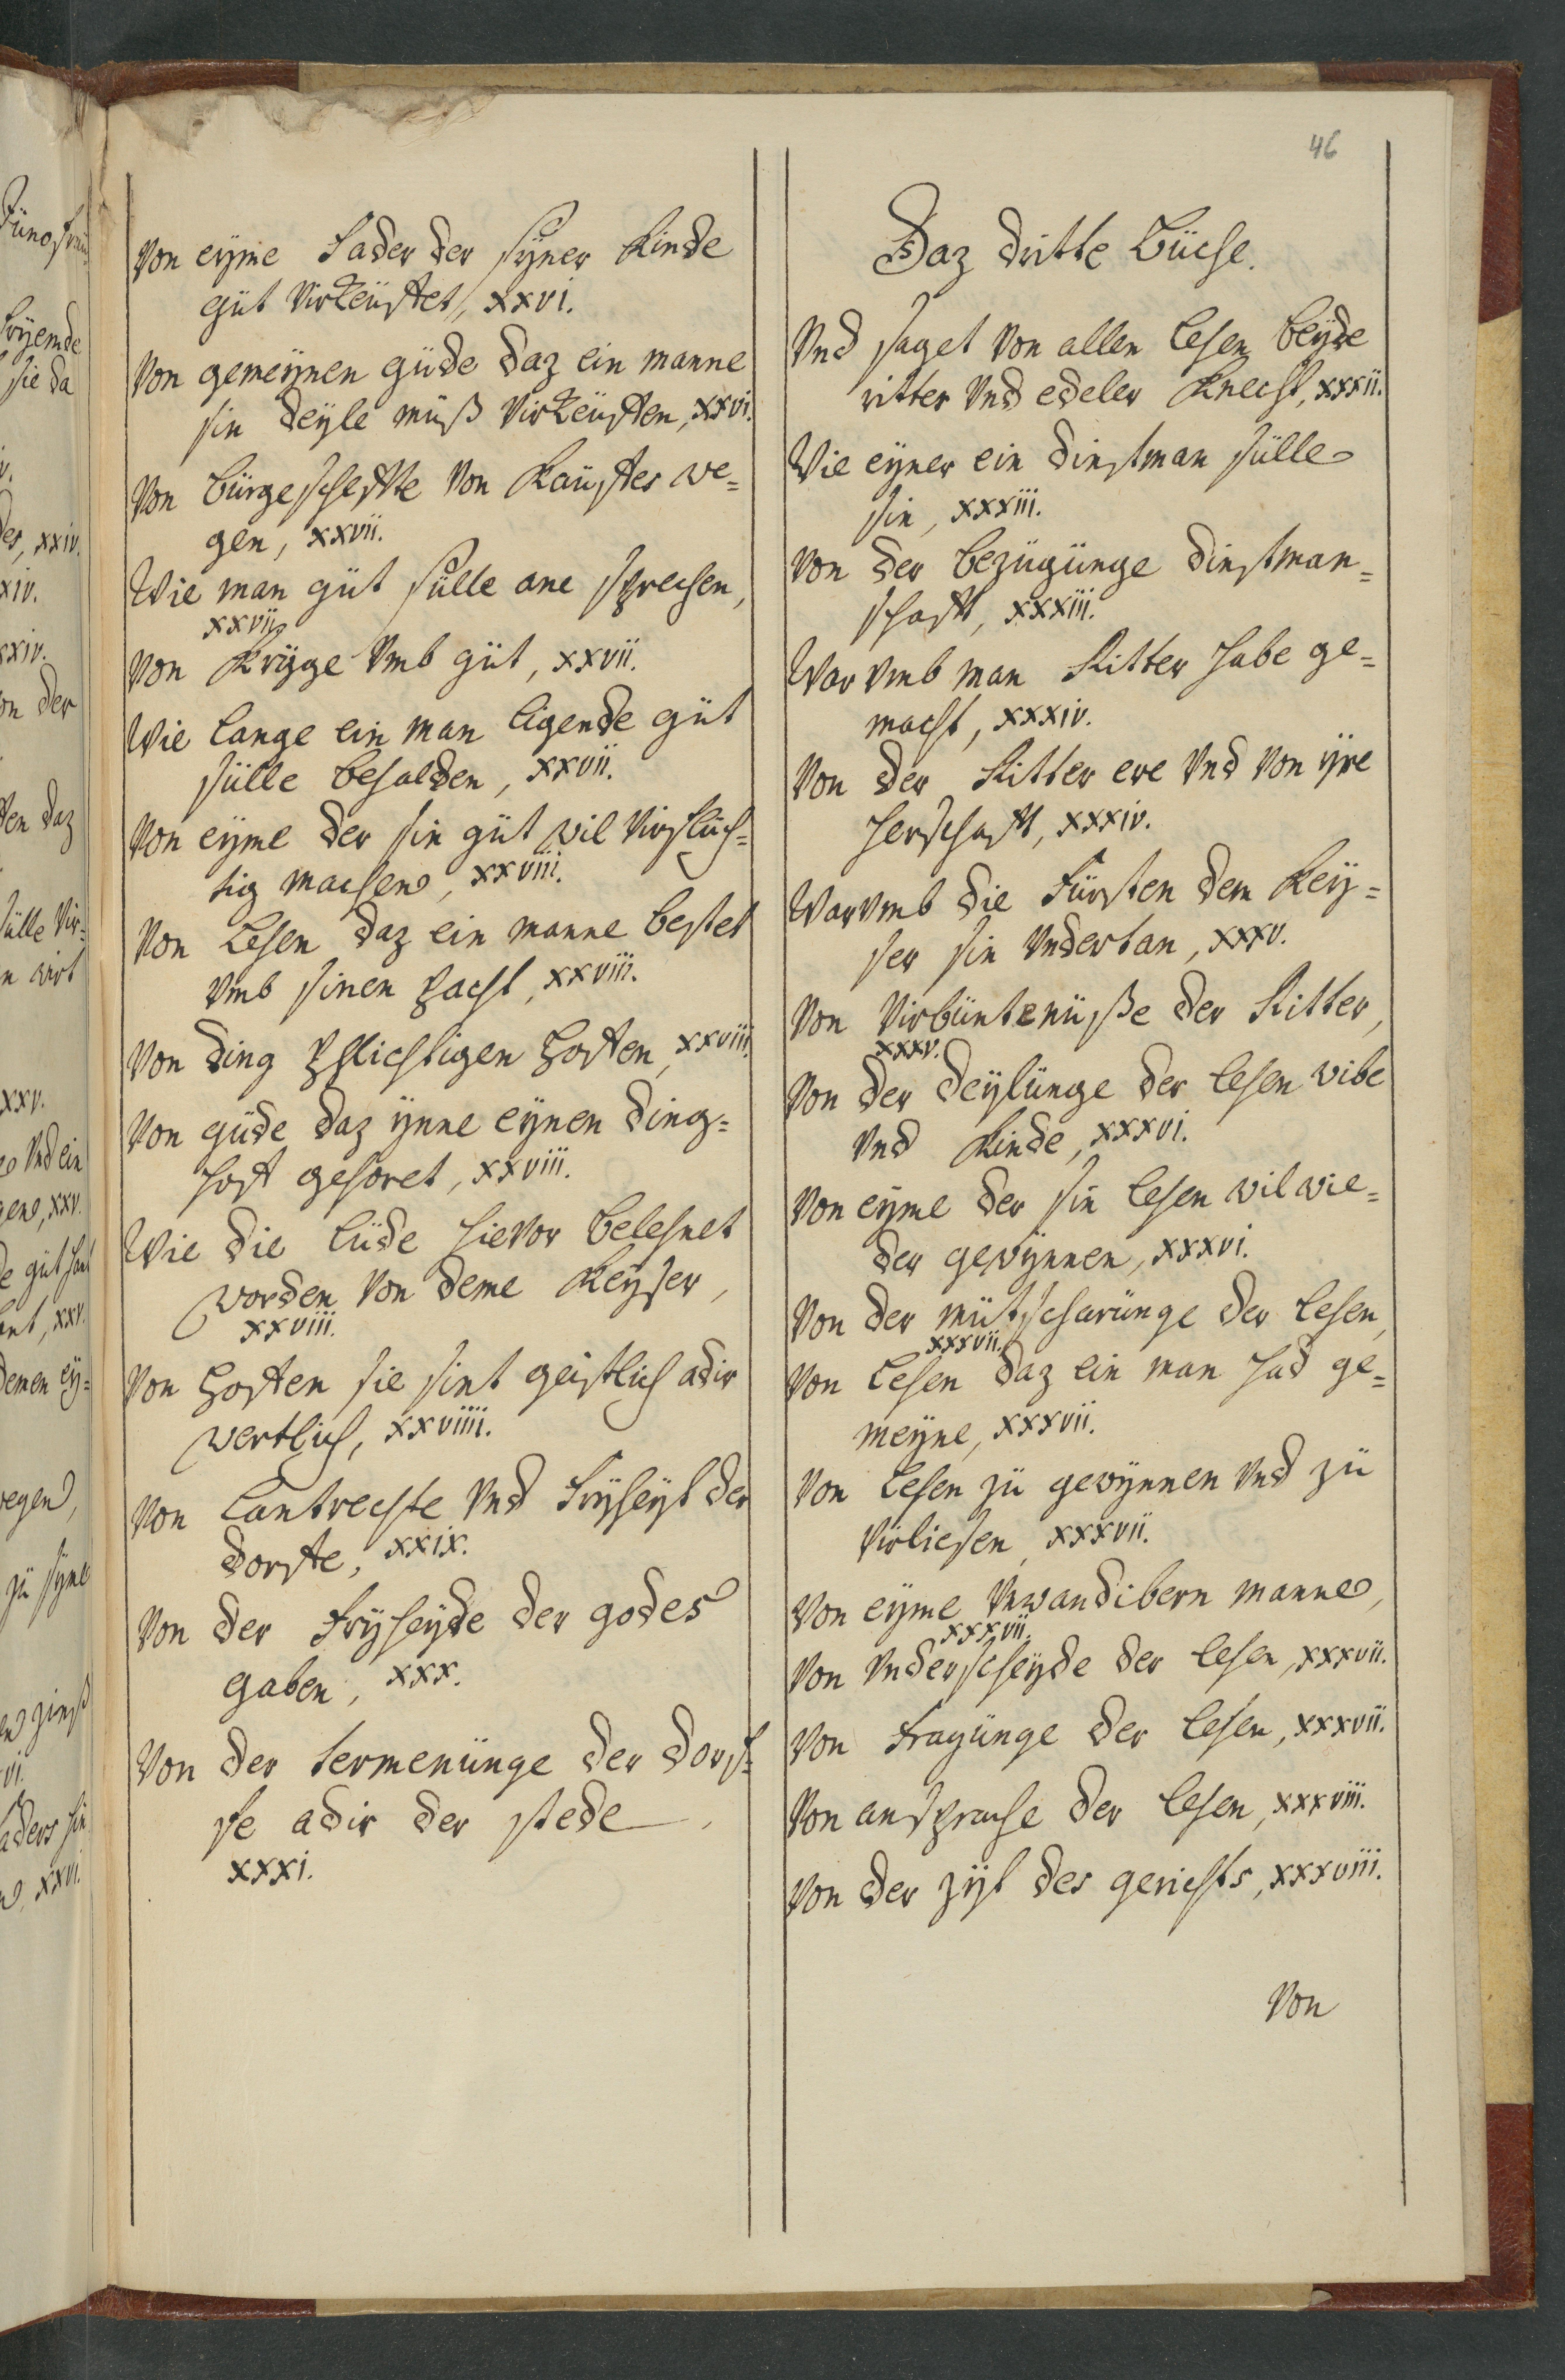 46
Von eyme Fader der syner Kinde
güt virkeüffet, xxvi.
Von gemeynen güde daz ein manne
sin deyle müß virkeüffen, xxvi.
Von bürgescheffte von Kauffes we=
gen, xxvii.
Wie man güt sülle ane sprechen,
xxvii.
Von Kryge vmb güt, xxvii.
Wie lange ein man ligende güt
sülle behalden, xxvii.
Von eyme der sin güt wil virflüch=
tig machen, xxviii.
Von Lehen daz ein manne bestet
vmb sinen pacht, xxviii.
Von ding pflichtigen hoffen, xxviii.
Von güde daz ynne eynen ding=
hoff gehoret, xxviii.
Wie die lüde hievor belehnet
worden von deme Keyser,
xxviii.
Von hoffen sie sint geistlich adir
wertlich, xxviiii.
Von Lantrechte vnd Fryheyt der
dorffe, xxix.
Von der Fryheyde der godes
gaben, xxx.
Von der termenünge der dorf=
fe adir der stede
xxxi.
Daz dritte Büche.
Vnd saget von allen lehen beyde
ritter vnd edeler Knecht, xxxii.
Wie eyner ein dinstman sülle
sin, xxxiii.
Von der bezügünge dinstman=
schafft, xxxiii.
War vmb man Ritter habe ge=
macht, xxxiv.
Von der Ritter ere vnd von yre
herschafft, xxxiv.
Warvmb die Fürsten dem Key=
ser sin vndertan, xxxv.
Von virbüntenüße der Ritter,
xxxv.
Von der deylünge der lehen wibe
vnd Kinde, xxxvi.
Von eyme der sin lehen wil wie=
der gewynnen, xxxvi.
Von der mütscharünge der lehen,
xxxvii.
Von Lehen daz ein man had ge=
meyne, xxxvii.
Von Lehen zü gewynnen vnd zü
virliesen, xxxvii.
Von eyme vnwandibern manne,
xxxvii.
Von vnderscheyde der lehen, xxxvii.
Von Fragünge der lehen, xxxvii.
Von ansprache der lehen, xxxviii.
Von der zyt des gerichts, xxxviii.
Von